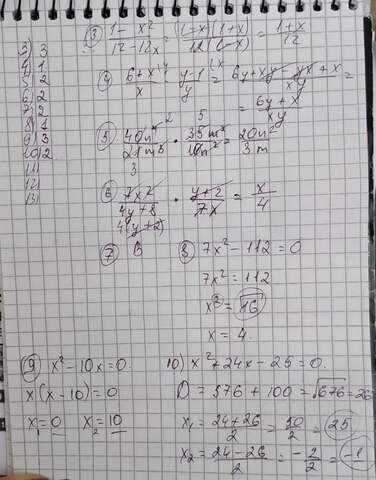 3) 3
4) 1
5) 2
6) 2
7) 2
8) 1
9) 3
10) 2
11)
12)
13)
③ 1 - x² / 12 - 12x = (1-x)(1+x) / 12(1-x) = 1+x / 12
④ 6+x / x - y-1 / y = 6y + xy - yx + x / xy =
= 6y + x / xy
⑤ 40n⁴ / 21m³ · 35m² / 16n² = 20n² / 3m
⑥ 7x² / 4y+8 · y+2 / 7x = x / 4
4(y+2)
⑦ B
⑧ 7x² - 112 = 0
7x² = 112
x² = √16
x = 4.
⑨ x² - 10x = 0.
x(x - 10) = 0
x₁ = 0 x₂ = 10
10) x² + 24x - 25 = 0.
D = 576 + 100 = √676 = 26
x₁ = 24+26 / 2 = 50 / 2 = 25
x₂ = 24-26 / 2 = -2 / 2 = -1